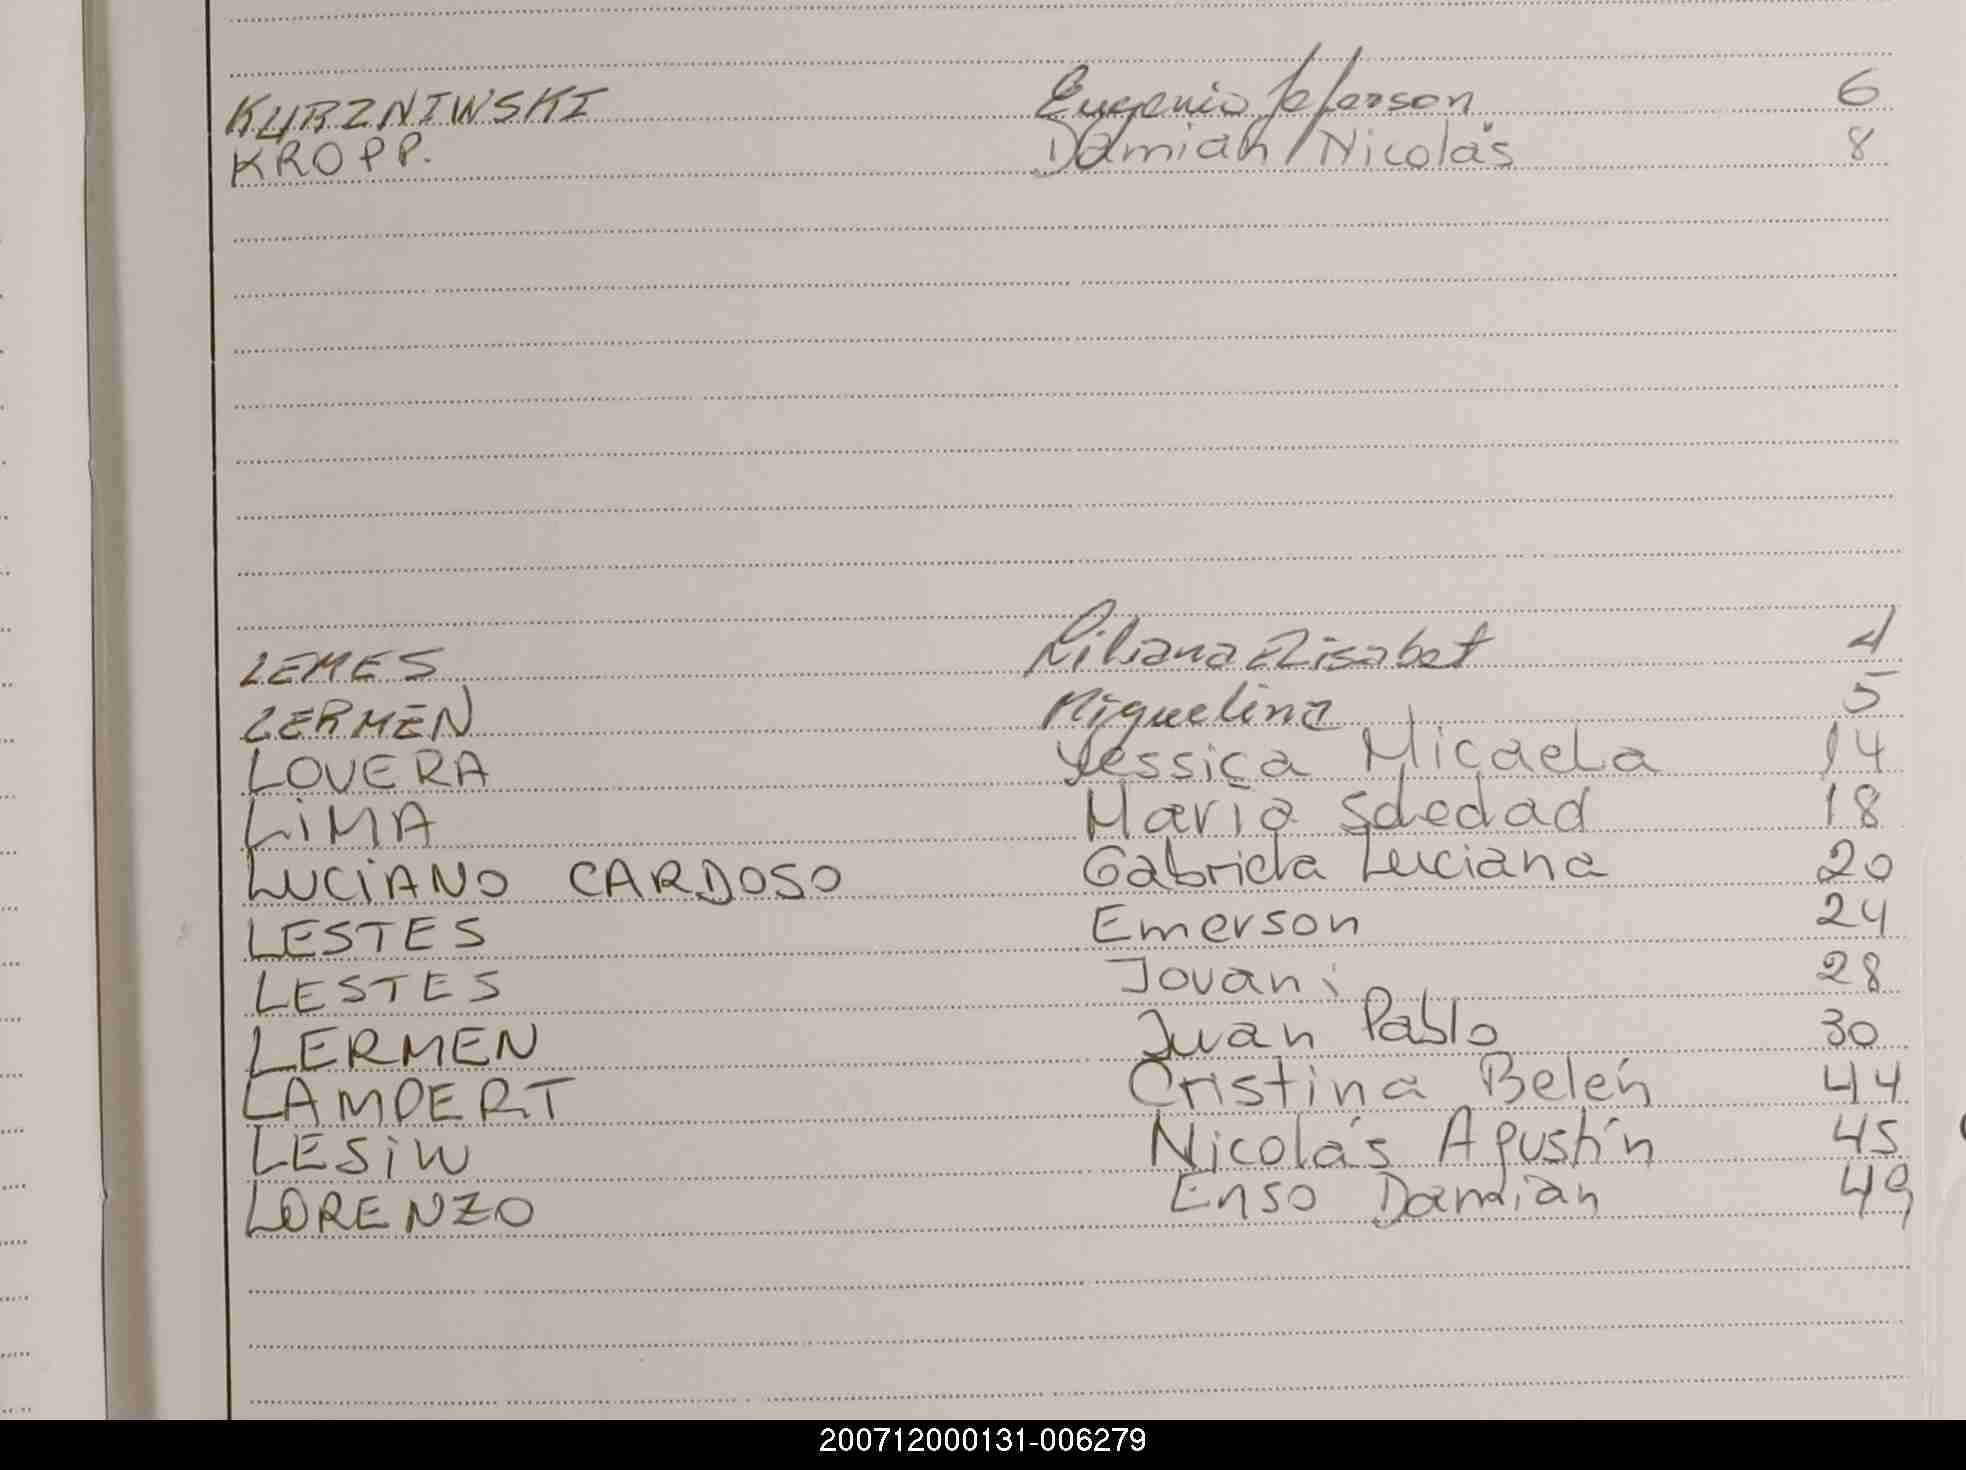 KURZNIWSKI Eugenio Jeferson 6
KROPP. Damian Nicolás 8
LEMES Liliana Elisabet 4
LERMEN Miguelina 5
LOVERA Yessica Micaela 14
LIMA María Soledad 18
LUCIANO CARDOSO Gabriela Luciana 20
LESTES Emerson 24
LESTES Jovani 28
LERMEN Juan Pablo 30
LAMPERT Cristina Belén 44
LESIW Nicolás Agustín 45
LORENZO Enso Damian 49
200712000131-006279